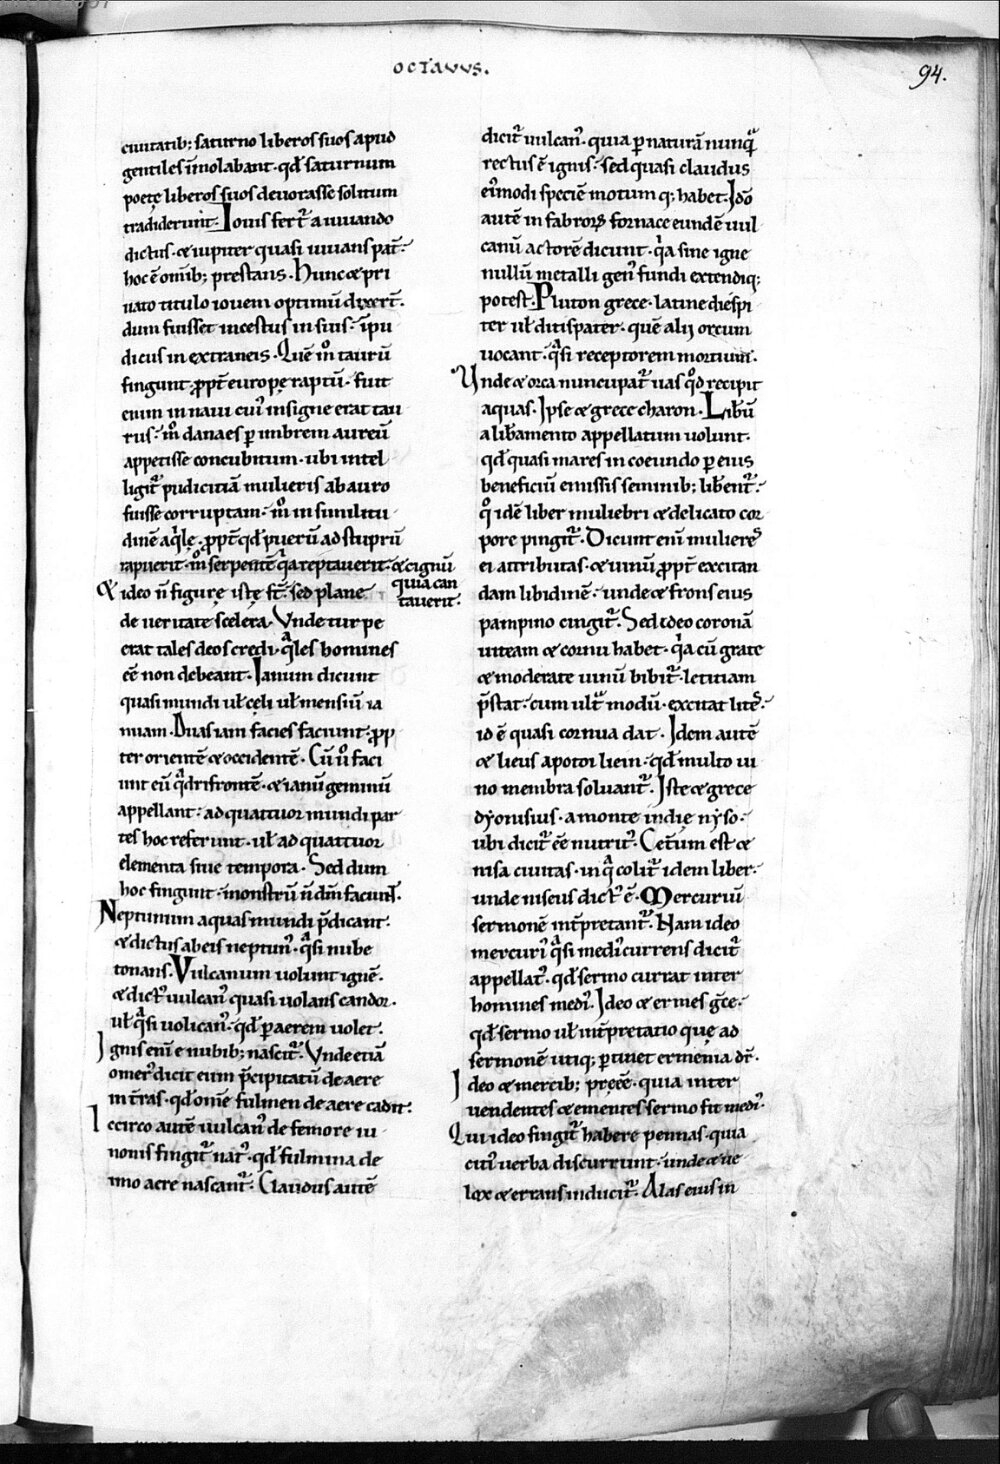 OCTAVVS.
94.
ciuitatib; saturno liberos suos apud
gentiles īmolabant· qđ saturnum
poetę liberos suos deuorasse solitum
tradiderunt· Iouis fert᷑ a iuuando
dictus· & iupiter quasi iuuans pat̄·
hoc ē omīb; prestans· Hunc & pri
uato titulo iouem optimū dixer̄t·
dum fuisset incestus in suis· īpu
dicus in extraneis· Quē m̊ taurū
fingunt· ꝓpt̄ europę raptū· fuit
enim in naui cui᷒ insigne erat tau
rus· m̊ danaes ꝑ imbrem aureū
appetisse concubitum· ubi intel
ligit᷑ pudicitiā mulieris ab auro
fuisse corruptam· m̊ in similitu
dinē aq̇lę· ꝓpt̄ qđ puerū ad stuprū
rapuerit· m̊ serpentē q̇a reptauerit· & cignū
quia can
tauerit·
& ideo n̄ figurę istę st̄· sed plane
de ueritate scelera· Vnde turpe
erat tales deos credi· qͣles homines
eē non debeant· Ianum dicunt
quasi mundi ul̵ cęli ul̵ mensiū ia
nuam· Duas iani facies faciunt· ꝓp
ter orientē & occidentē· Cū ů faci
unt eū qͣdrifrontē· & ianū geminū
appellant· ad quattuor mundi par
tes hoc referunt· ul̵ ad quattuor
elementa siue tempora· Sed dum
hoc fingunt· monstrū n̄ dm̄ faciunt·
Neptunum aquas mundi p̄dicant·
& dictus ab eis neptun᷒· qͣsi nube
tonans· Vulcanum uolunt ignē·
& dict᷒ uulcan᷒ quasi uolans candor·
ul̵ qͣsi uolican᷒· qđ ꝑ aerem uolet·
Ignis enī e nubib; nascit᷑· Vnde etiā
omer᷒ dicit eum p̄cipitatū de aere
in t̄ras· qđ omē fulmen de aere cadit·
Iccirco autē uulcan᷒ de femore iu
nonis fingit᷑ nat᷒· qđ fulmina de
imo aere nascant᷑· Claudus autē
dicit᷑ uulcan᷒· quia ꝑ naturā nunqͣ̄
rectus ē ignis· sed quasi claudus
ei᷒modi speciē motum q; habet· Idō
autē in fabroꝝ fornace eundē uul
canū actorē dicunt· q̇a sine igne
nullū metalli gen᷒ fundi extendiq;
potest· Pluton grece· latine diespi
ter ul̵ ditispater· quē alij orcum
uocant· qͣsi receptorem mortium·
Vnde & orca nuncupat᷑ uas qͦd recipit
aquas· Ipse & grece charon· Lib̵ū
a lib̵amento appellatum uolunt·
qđ quasi mares in coeundo ꝑ eius
beneficiū emissis seminib; lib̵ent᷑·
qͦ idē liber muliebri & delicato cor
pore pingit᷑· Dicunt enī mulieres
ei attributas· & uinū ꝓpt̄ excitan
dam libidinē· unde & frons eius
pampino cingit᷑· Sed ideo coronā
uiteam & cornu habet· q̇a cū grate
& moderate uinū bibit᷑· letitiam
p̄stat· cum ult̄ modū· excitat lites·
id ē quasi cornua dat· Idem autē
& lieus apo toy liein· qđ multo ui
no membra soluant᷑· Iste & grece
dyonisius· a monte indię nyso·
ubi dicit᷑ eē nutrit᷒· Cet̄um est &
nisa ciuitas· in qͣ colit᷑ idem liber·
unde niseus dict᷒ ē· Mercuriū
sermonē int̄pretant᷑· Nam ideo
mercuri᷒ qͣsi medi᷒ currens dicit᷑
appellat᷒· qđ sermo currat inter
homines medi᷒· Ideo & ermes gr̄ce·
qđ sermo ul̵ int̄pretatio quę ad
sermonē utiq; ꝑtinet ermenia dr̄·
Ideo & mercib; preēē· quia inter
uendentes & ementes sermo fit medi᷒·
Qui ideo fingit᷑ habere pennas· quia
citi᷒ uerba discurrunt· unde & ue
lox & errans inducit᷑· Alas eius in